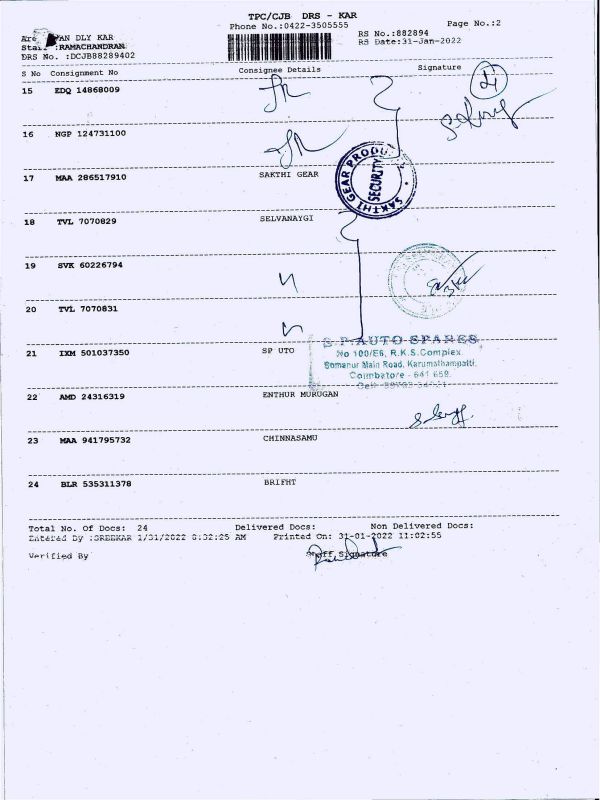 TPC/CJB DRS - KAR
Phone No.:0422-3505555
Page No.:2
RS No.:882894
RS Date:31-Jan-2022
AN DLY KAR
:RAMACHANDRAN
DRS No. :DCJB88289402
S No Consignment No Consignee Details Signature
15 EDQ 14868009
16 NGP 124731100
17 MAA 286517910 SAKTHI GEAR
SAKTHI GEAR PRODU
SECURITY
18 TVL 7070829 SELVANAYGI
19 SVK 60226794
20 TVL 7070831
21 IXM 501037350 SP UTO
S.P.AUTO SPARES
No 100/E6, R.K.S.Complex
Somanur Main Road, Karumathampatti,
Coimbatore - 641 659.
22 AMD 24316319 ENTHUR MURUGAN
23 MAA 941795732 CHINNASAMU
24 BLR 535311378 BRIFHT
Total No. Of Docs: 24 Delivered Docs: Non Delivered Docs:
Entered By :SREEKAR 1/31/2022 8:32:25 AM Printed On: 31-01-2022 11:02:55
Verified By Staff Signature